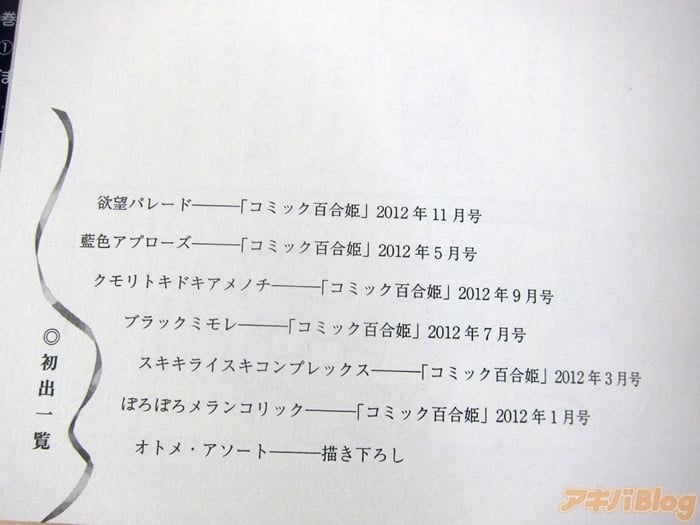 巻①
◎初出一覧
欲望パレード───「コミック百合姫」2012年11月号
藍色アプローズ───「コミック百合姫」2012年5月号
クモリトキドキアメノチ───「コミック百合姫」2012年9月号
ブラックミモレ───「コミック百合姫」2012年7月号
スキキライスキコンプレックス───「コミック百合姫」2012年3月号
ぽろぽろメランコリック───「コミック百合姫」2012年1月号
オトメ・アソート───描き下ろし
アキバBlog